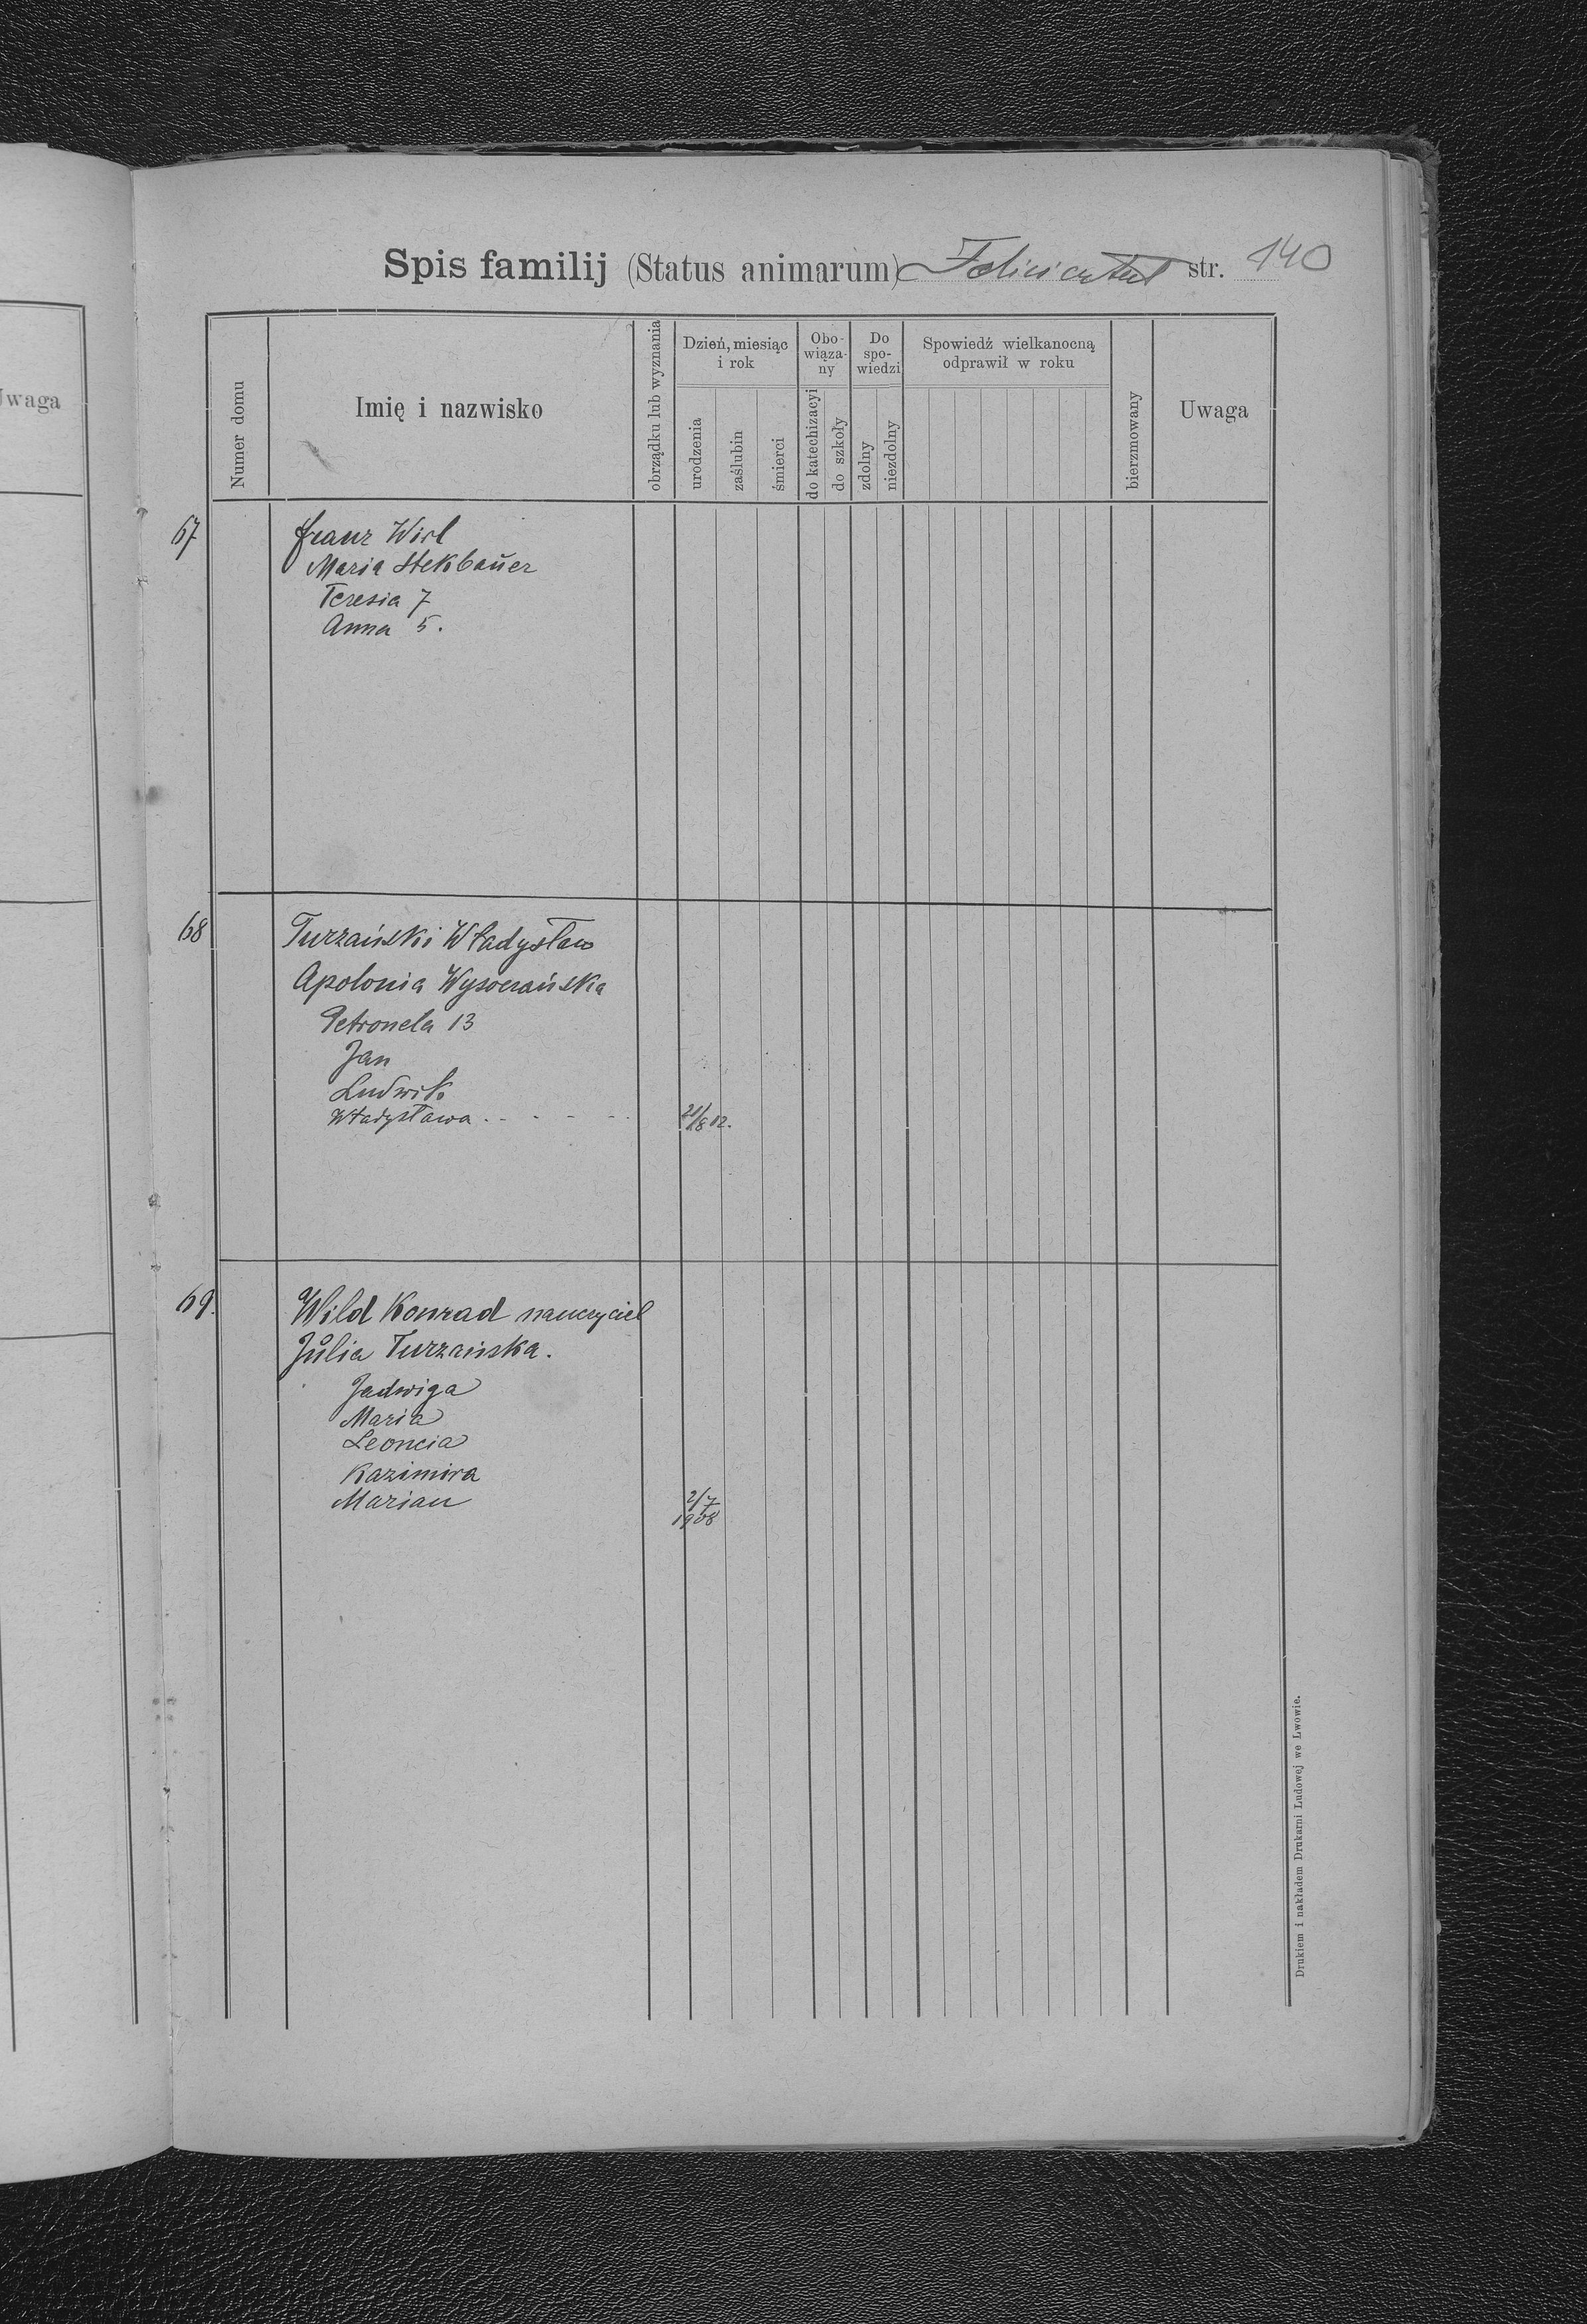 Uwaga
Spis familij (Status animarum) Felicientul str. 140
Numer domu
Imię i nazwisko
obrządku lub wyznania
Dzień, miesiąc
i rok
urodzenia
zaślubin
śmierci
Obo-
wiąza-
ny
do katechizacyi
do szkoły
Do
spo-
wiedzi
zdolny
niezdolny
Spowiedź wielkanocną
odprawił w roku
bierzmowany
Uwaga
67 Franz Wirl
Maria Stekbaŭer
Teresia 7
Anna 5.
68 Turzański Władysław
Apolonia Wysoczańska
Petronela 13
Jan
Ludwik
Władysława . - - - - 21/8 12.
69. Wild Konrad nauczyciel
Jůlia Turzańska.
Jadwiga
Maria
Leoncia
Kazimira
Marian 2/7
1908
Drukiem i nakładem Drukarni Ludowej we Lwowie.